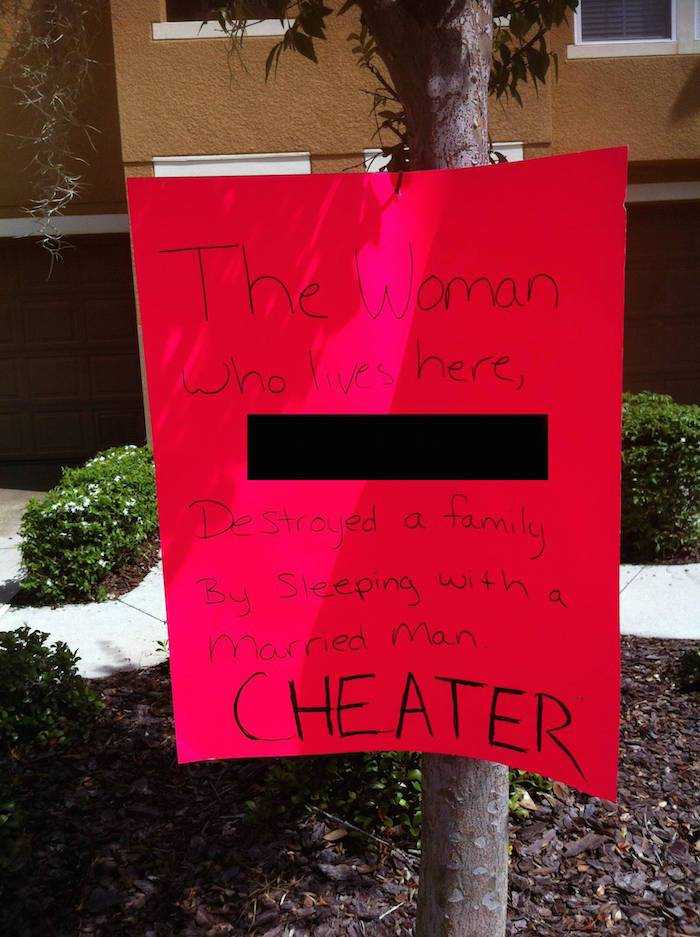 The Woman
who lives here,
Destroyed a family
By Sleeping with a
Married Man.
CHEATER